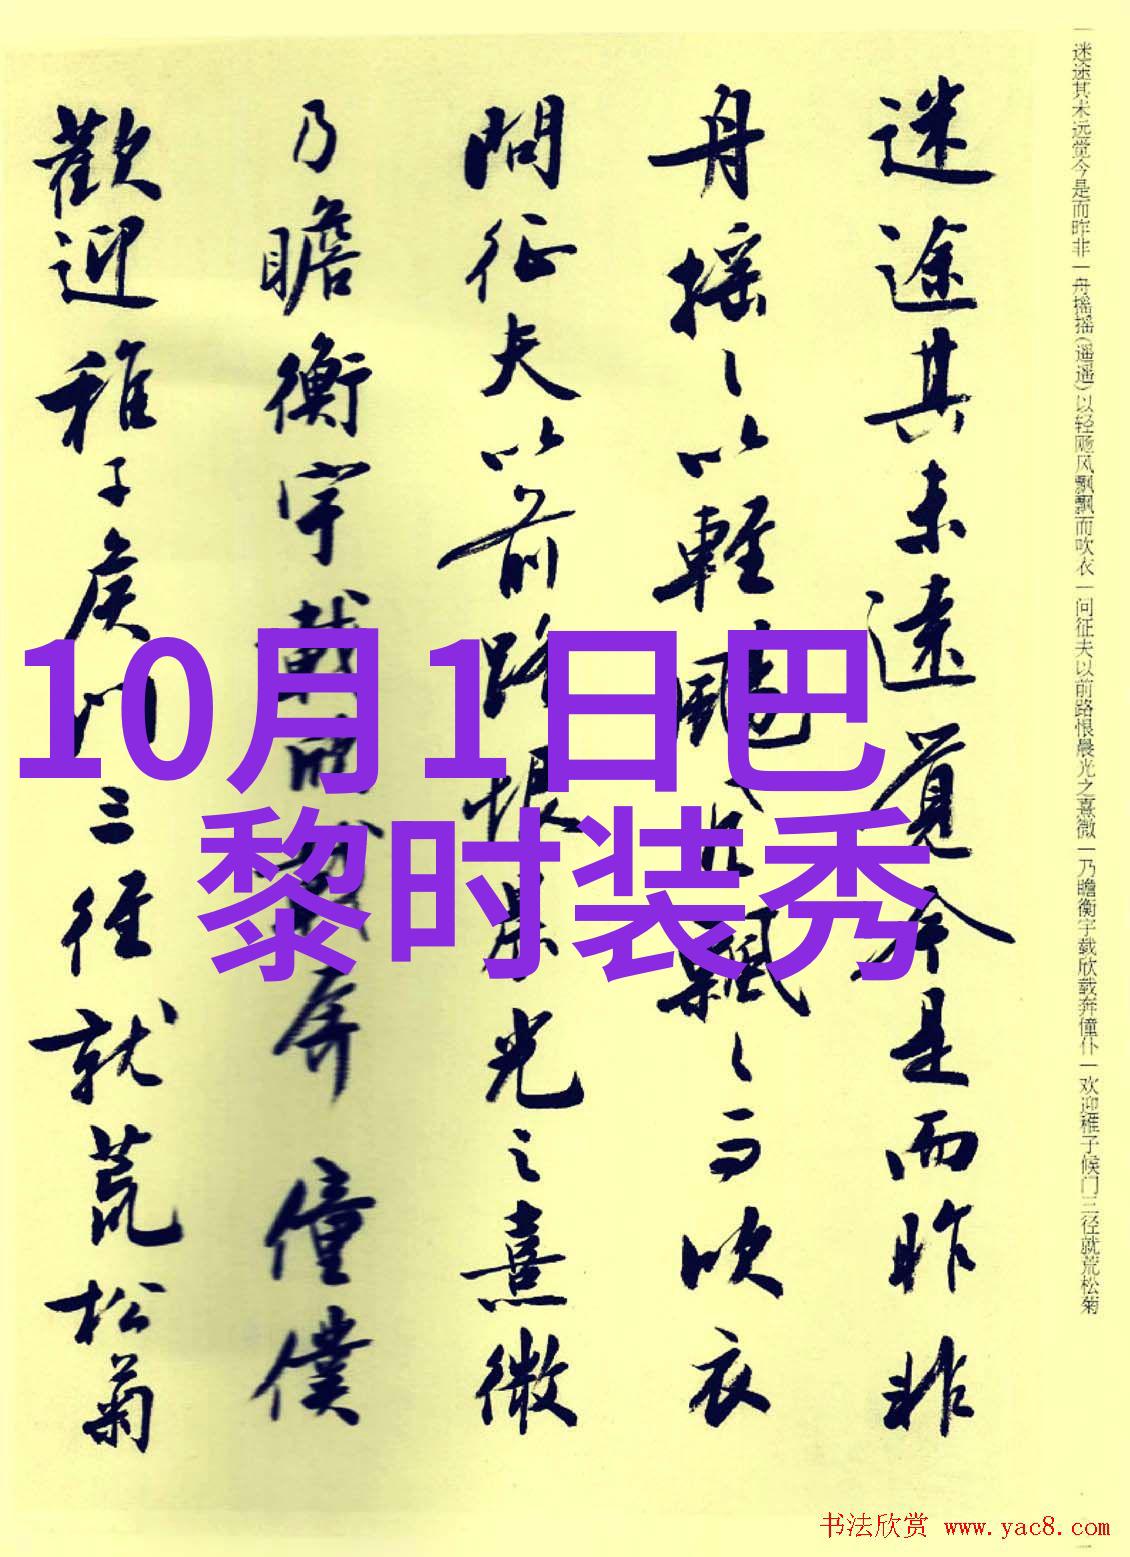 迷途其未远觉今是而昨非一舟摇摇(遥遥)以轻飏风飘飘而吹衣一问征夫以前路恨晨光之熹微一乃瞻衡宇载欣载奔僮仆一欢迎稚子候门三径就荒松菊
迷途其未遠覺今是而昨非
舟摇〻以輕颺風飄〻而吹衣
問征夫以前路恨晨光之熹微
乃瞻衡宇載欣載奔僮僕
歡迎稚子候門三徑就荒松菊
10月1日巴
黎时装秀
书法欣赏 www.yac8.com